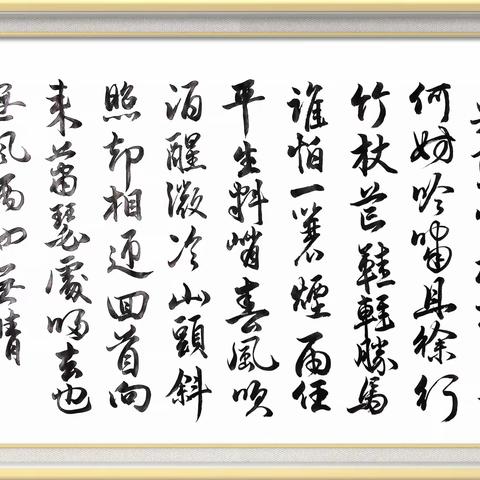 何妨吟嘯且徐行
竹杖芒鞋輕勝馬
誰怕一蓑煙雨任
平生料峭春風吹
酒醒微冷山頭斜
照却相迎回首向
来蕭瑟處歸去也
無風雨也無晴